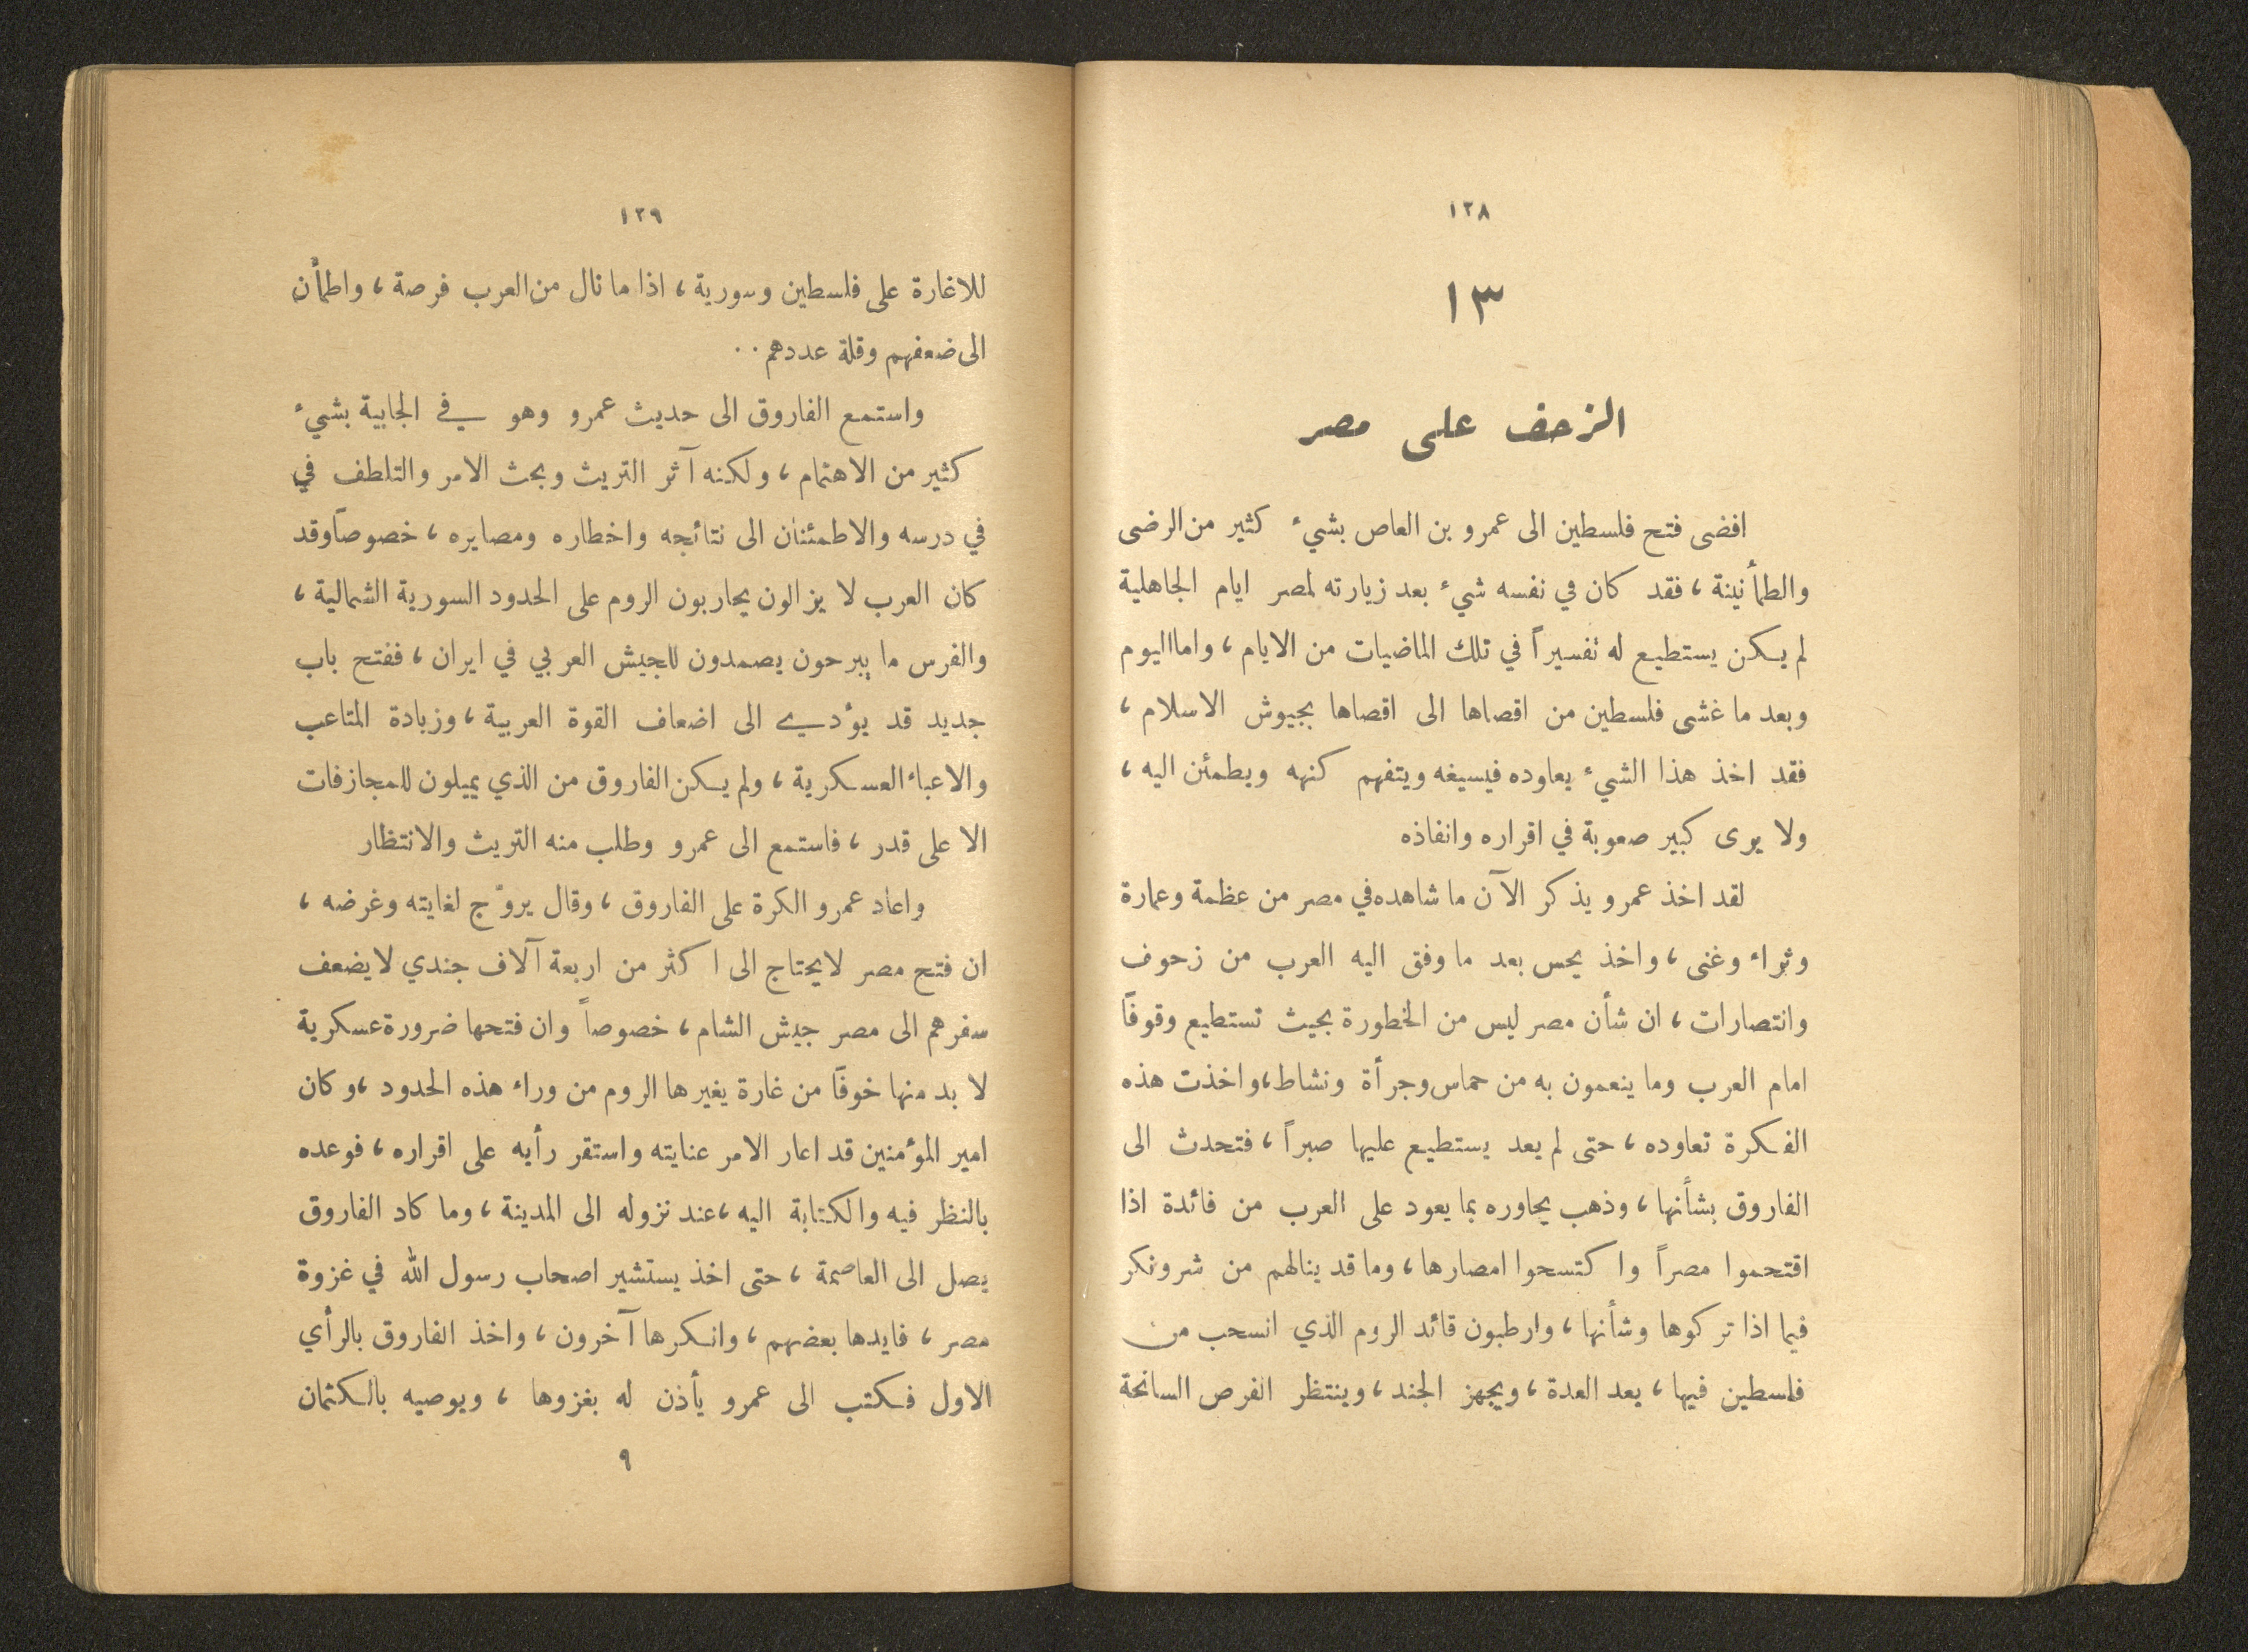 ١٢٨
١٣
الزحف على مصر
افضى فتح فلسطين الى عمرو بن العاص بشيء كثير من الرضى
والطمأنينة، فقد كان في نفسه شيء بعد زيارته لمصر ايام الجاهلية
لم يكن يستطيع له تفسيراً في تلك الماضيات من الايام، واما اليوم
وبعد ما غشى فلسطين من اقصاها الى اقصاها بجيوش الاسلام،
فقد اخذ هذا الشيء يعاوده فيسيغه ويتفهم كنهه ويطمئن اليه،
ولا يرى كبير صعوبة في اقراره وانفاذه
لقد اخذ عمرو يذكر الآن ما شاهده في مصر من عظمة وعمارة
وثراء وغنى، واخذ يحس بعد ما وفق اليه العرب من زحوف
وانتصارات، ان شأن مصر ليس من الخطورة بحيث تستطيع وقوفاً
امام العرب وما ينعمون به من حماس وجرأة ونشاط، واخذت هذه
الفكرة تعاوده، حتى لم يعد يستطيع عليها صبراً، فتحدث الى
الفاروق بشأنها، وذهب يحاوره بما يعود على العرب من فائدة اذا
اقتحموا مصراً واكتسحوا امصارها، وما قد ينالهم من شر ونكر
فيما اذا تركوها وشأنها، وارطبون قائد الروم الذي انسحب من
فلسطين فيها، يعد العدة، ويجهز الجند، وينتظر الفرص السانحة
١٢٩
للاغارة على فلسطين وسورية، اذا ما نال من العرب فرصة، واطمأن
الى ضعفهم وقلة عددهم..
واستمع الفاروق الى حديث عمرو وهو في الجابية بشيء
كثير من الاهتمام، ولكنه آثر التريث وبحث الامر والتلطف في
في درسه والاطمئنان الى نتائجه واخطاره ومصايره، خصوصاً وقد
كان العرب لا يزالون يحاربون الروم على الحدود السورية الشمالية،
والفرس ما يبرحون يصمدون للجيش العربي في ايران، ففتح باب
جديد قد يؤدي الى اضعاف القوة العربية، وزيادة المتاعب
والاعباء العسكرية، ولم يكن الفاروق من الذي يميلون للمجازفات
الا على قدر، فاستمع الى عمرو وطلب منه التريث والانتظار
واعاد عمرو الكرة على الفاروق، وقال يروّج لغايته وغرضه،
ان فتح مصر لايحتاج الى اكثر من اربعة آلاف جندي لا يضعف
سفرهم الى مصر جيش الشام، خصوصاً وان فتحها ضرورة عسكرية
لا بد منها خوفاً من غارة يغيرها الروم من وراء هذه الحدود، وكان
امير المؤمنين قد اعار الامر عنايته واستقر رأيه على اقراره، فوعده
بالنظر فيه والكتابة اليه، عند نزوله الى المدينة، وما كاد الفاروق
يصل الى العاصمة، حتى اخذ يستشير اصحاب رسول الله في غزوة
مصر، فايدها بعضهم، وانكرها آخرون، واخذ الفاروق بالرأي
الاول فكتب الى عمرو يأذن له بغزوها، ويوصيه بالكتمان
٩